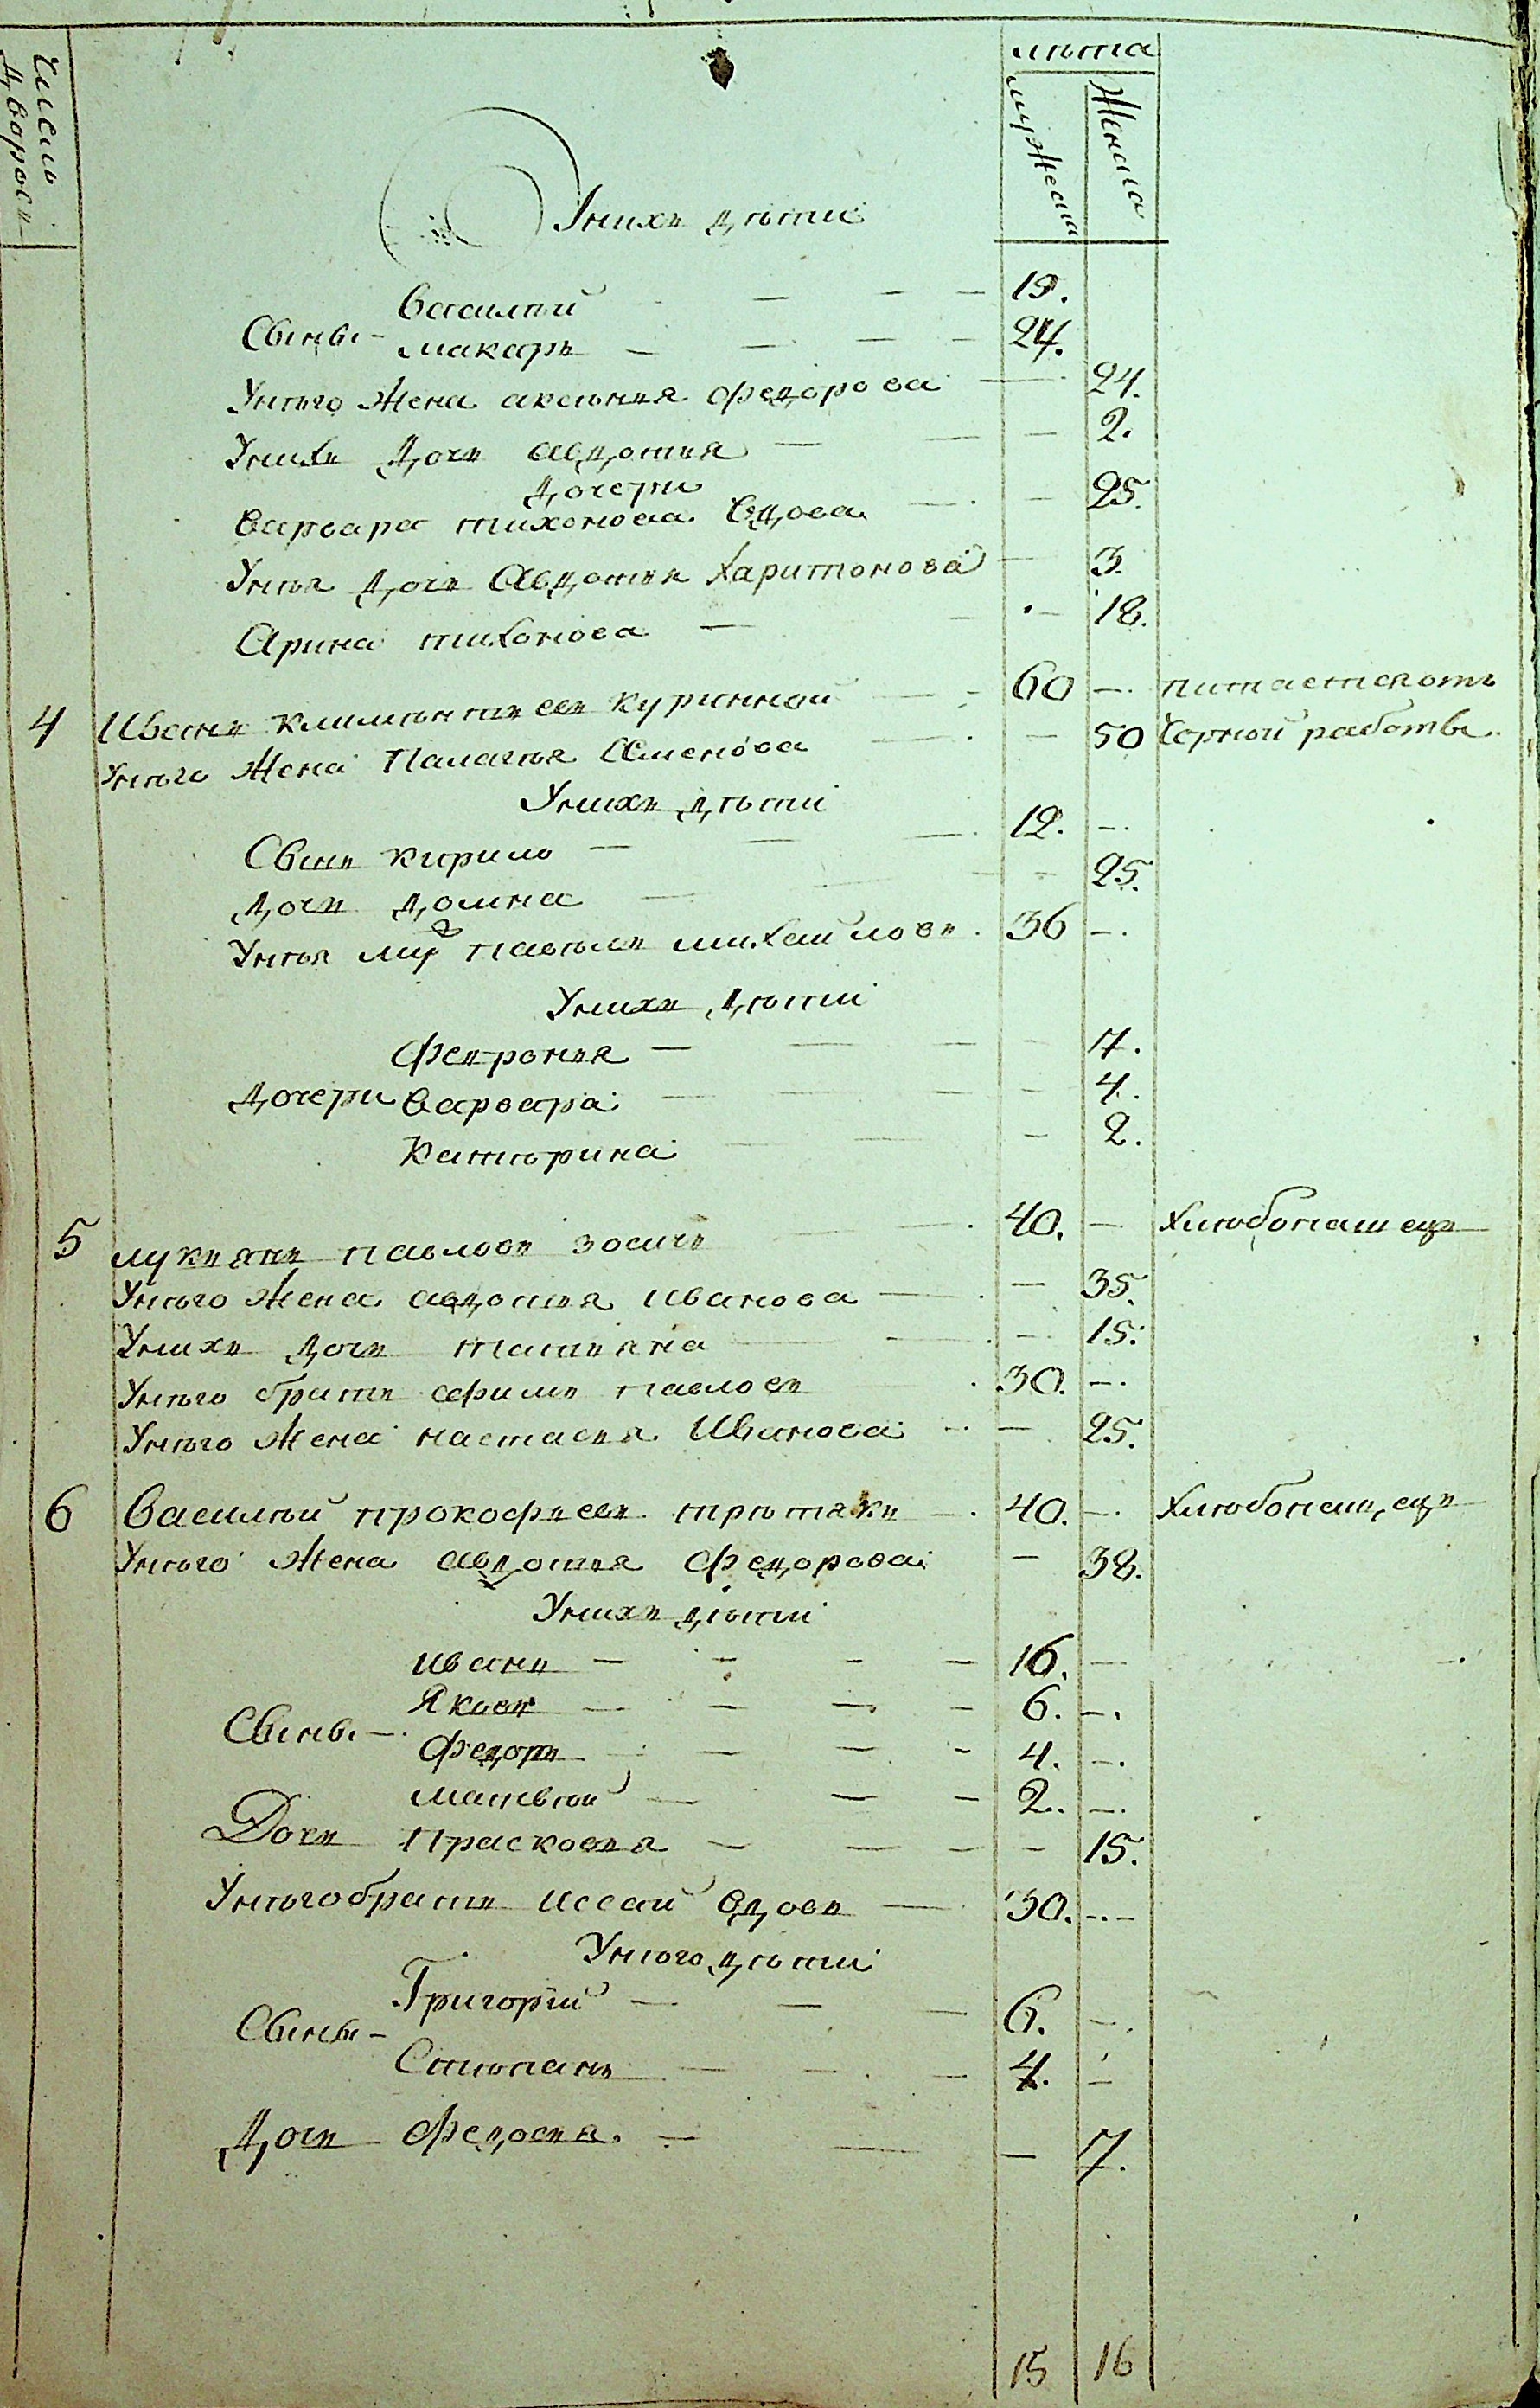 Число дворовъ
лѣта
мужеска
Женска
Унихъ дѣти
Василѣй 19.
Сыны-
Макаръ 24.
Унѣго Жена аксѣнья федорова 24.
Унихъ Дочь авдотья 2.
Дочери
Варвара тихонова вдова 25.
Унѣя дочь Авдотья Харитонова 3.
Арина тихонова 18.
4 Иванъ климѣнтьевъ куринной 60 питается отъ
Унѣго Жена Палагѣя Семенова 50 Чорной работы.
Унихъ дѣти
Сынъ кирило 12.
Дочь домна 25.
Унѣя муж павѣлъ михайловъ. 36
Унихъ дѣти
Февронья 7.
Дочери Варвара 4.
Катѣрина 2.
5 лукьянъ павловъ зосичь 40. Хлѣбопашецъ
Унѣго Жена авдотья иванова 35.
Унихъ дочь татьяна 15.
Унѣго братъ ефимъ павловъ 30.
Унѣго Жена настасья Иванова 25.
6 Василѣй прокофьевъ трѣтякъ 40. Хлѣбопашецъ
Унѣго Жена авдотья федорова 38.
Унихъ дѣти
иванъ 16.
Яковъ 6.
Сыны-
Федоръ 4.
матвѣй 2.
Дочь Прасковья 15.
Унѣго братъ иссай вдовъ 30.
Унѣго дѣти
Григорий 6.
Сыны-
Стѣпанъ 4.
Дочь Федосья. 7.
15 16